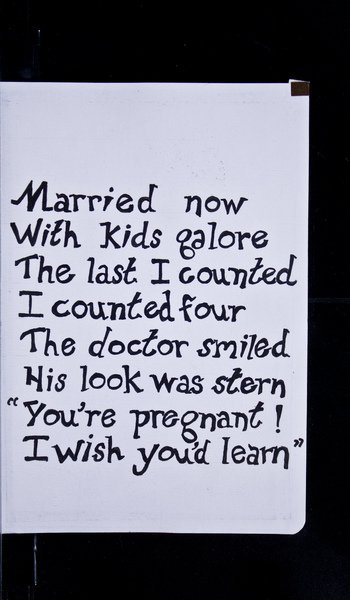 Married now
With Kids galore
The last I counted
I counted four
The doctor smiled
His look was stern
“You're pregnant!
I wish you'd learn”